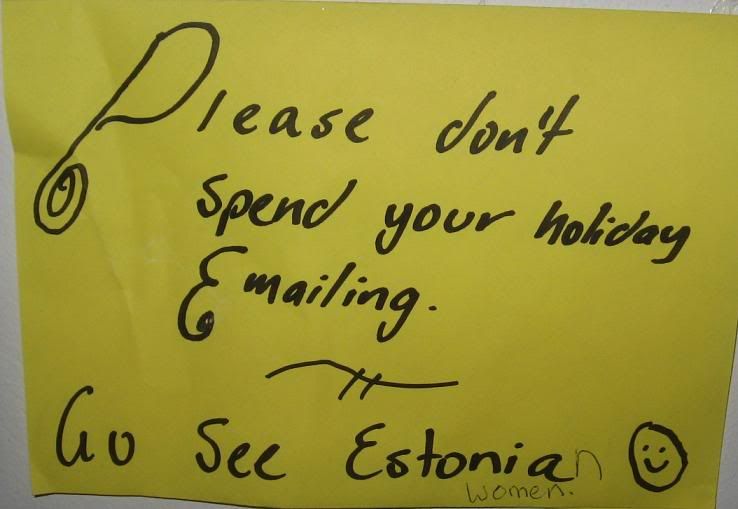 Please don't
spend your holiday
Emailing.
Go See Estonian
women.